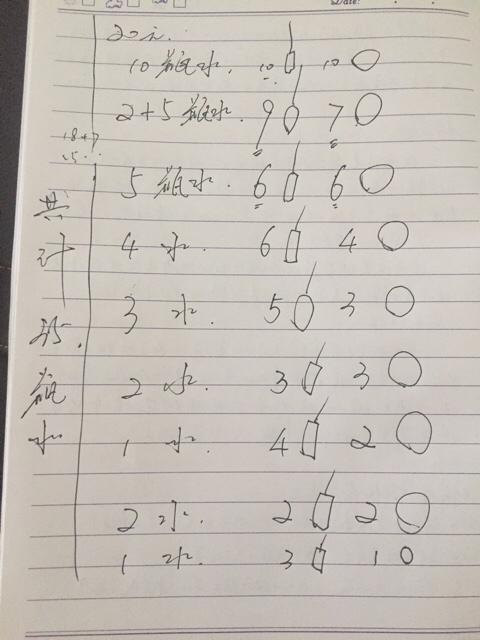 Date:
20元.
10 瓶水. 10 10
2+5 瓶水. 9 7
5 瓶水. 6 6
4 水. 6 4
3 水. 5 3
2 水. 3 3
1 水. 4 2
2 水. 2 2
1 水. 3 1
共
计
35.
瓶
水